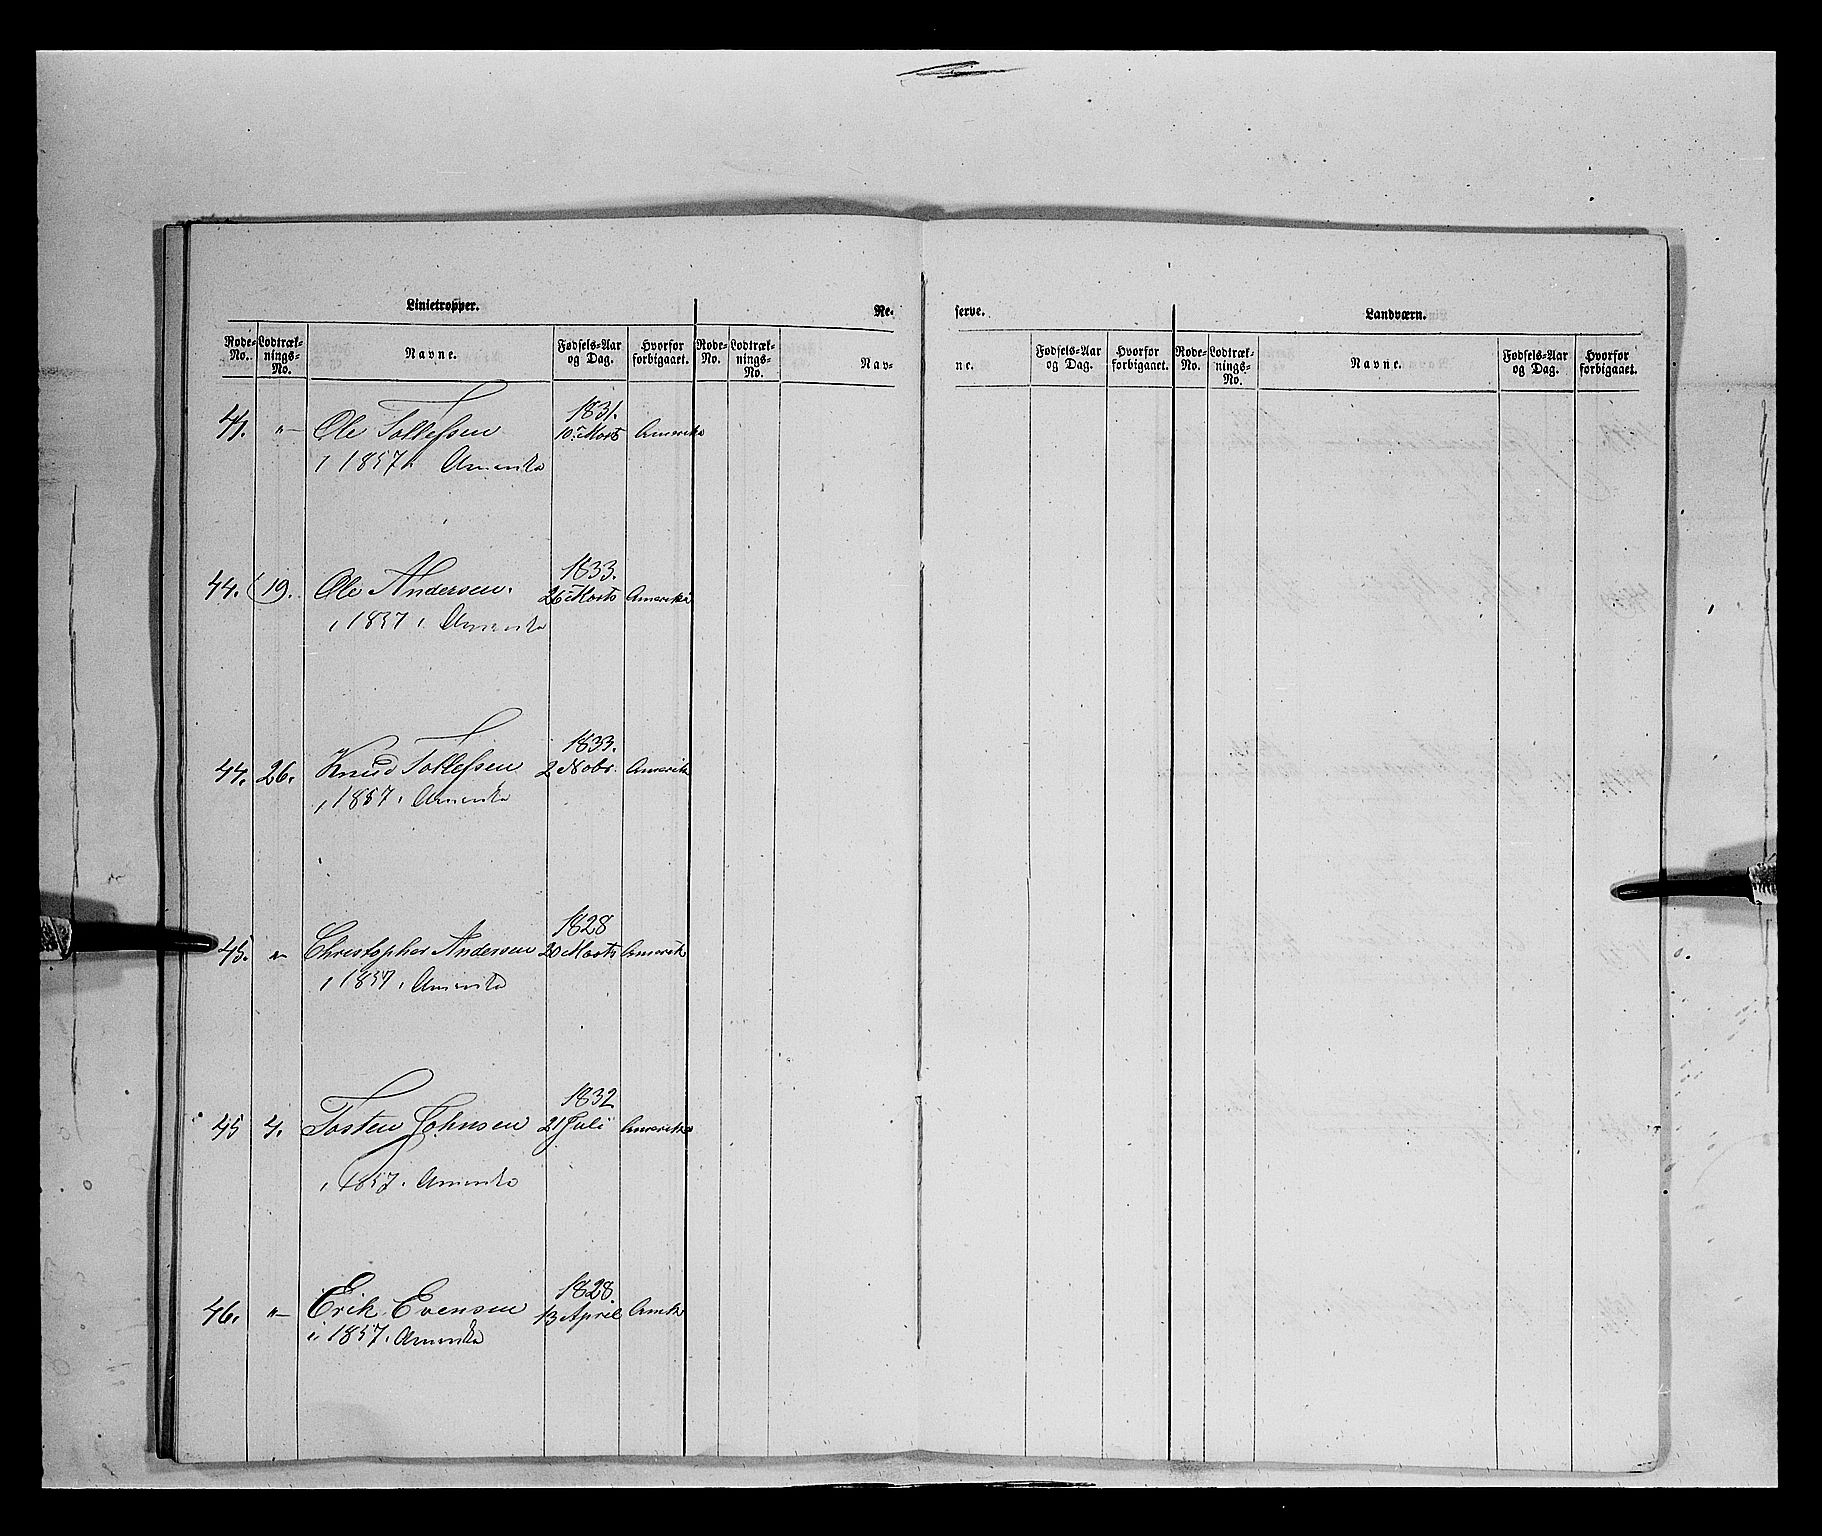 Linietropper.
Re-
serve.
Landværn.
Rode-No. Lodtræk-nings-No. Navne. Fødsels-Aar og Dag. Hvorfor forbigaaet. Rode-No. Lodtræk-nings-No. Nav-
ne. Fødsels-Aar og Dag. Hvorfor forbigaaet. Rode-No. Lodtræk-nings-No. Navne. Fødsels-Aar og Dag. Hvorfor forbigaaet.
1831.
41. „ Ole Tollefsen 10. Marts Amerika
i 1857 i Amerika
1833.
44. 19. Ole Andersen. 26 Marts Amerika
i 1857 i Amerika
1833.
44. 26. Knud Tollefsen 2 Novbr. Amerika
i 1857 i Amerika
1828
45. „ Christopher Andersen 20 Marts Amerik
i 1857 i Amerika
1832
45 4. Tosten Johnsen 21 Juli Amerika
i 1857 i Amerika
1828.
46. „ Erik Evensen 13 April Amka
i 1857 i Amerika